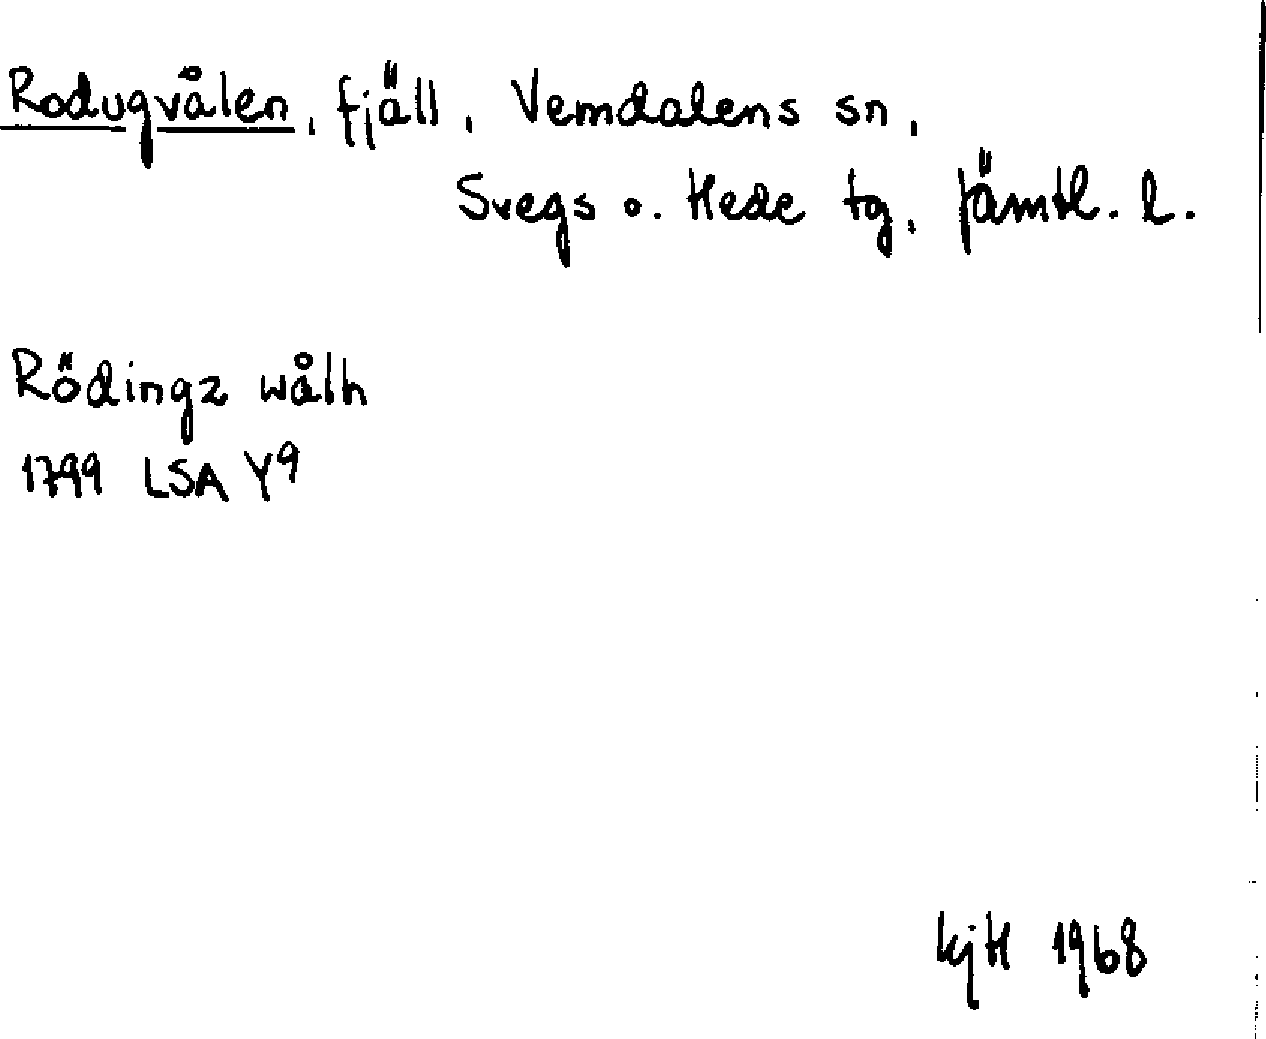 Rodugvålen, fjäll, Vemdalens sn,
Svegs o. Hede tg, Jämtl. l.
Rödingz wålh
1799 LSA Y9
kjH 1968